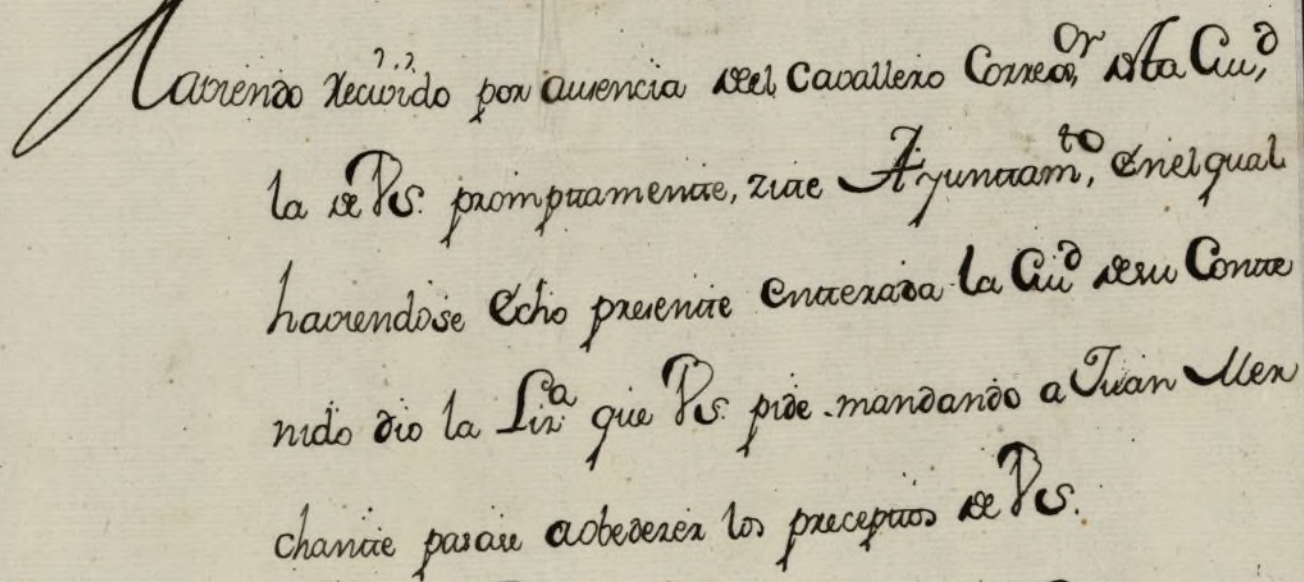 Haviendo recivido por ausencia del Cavallero Correg.or desta Ciu.d
la de VS. promptamente, zite Ayuntam.to, en el qual
haviendose echo presente enterada la Ciu.d de su Conte
nido dio la Liz.a que VS. pide mandando a Juan Mer
chante pasase a obedezer los preceptos de VS.